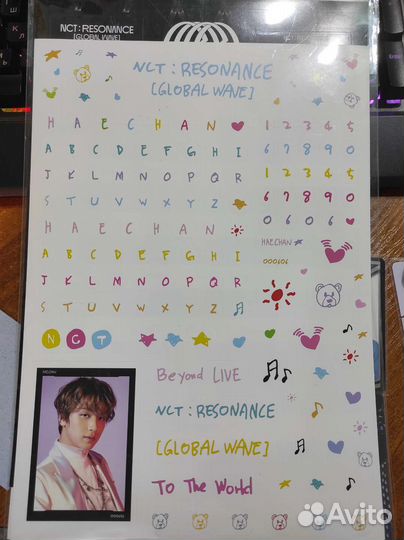 NCT : RESONANCE
[GLOBAL WAVE]
NCT : RESONANCE
[GLOBAL WAVE]
H A E C H A N
1 2 3 4 5
A B C D E F G H I
6 7 8 9 0
J K L M N O P Q R
1 2 3 4 5
S T U V W X Y Z
6 7 8 9 0
H A E C H A N
0 6 0 6
A B C D E F G H I
HAECHAN
000606
J K L M N O P Q R
S T U V W X Y Z
N C T
Beyond LIVE
NCT : RESONANCE
[GLOBAL WAVE]
To The World
000606
Avito